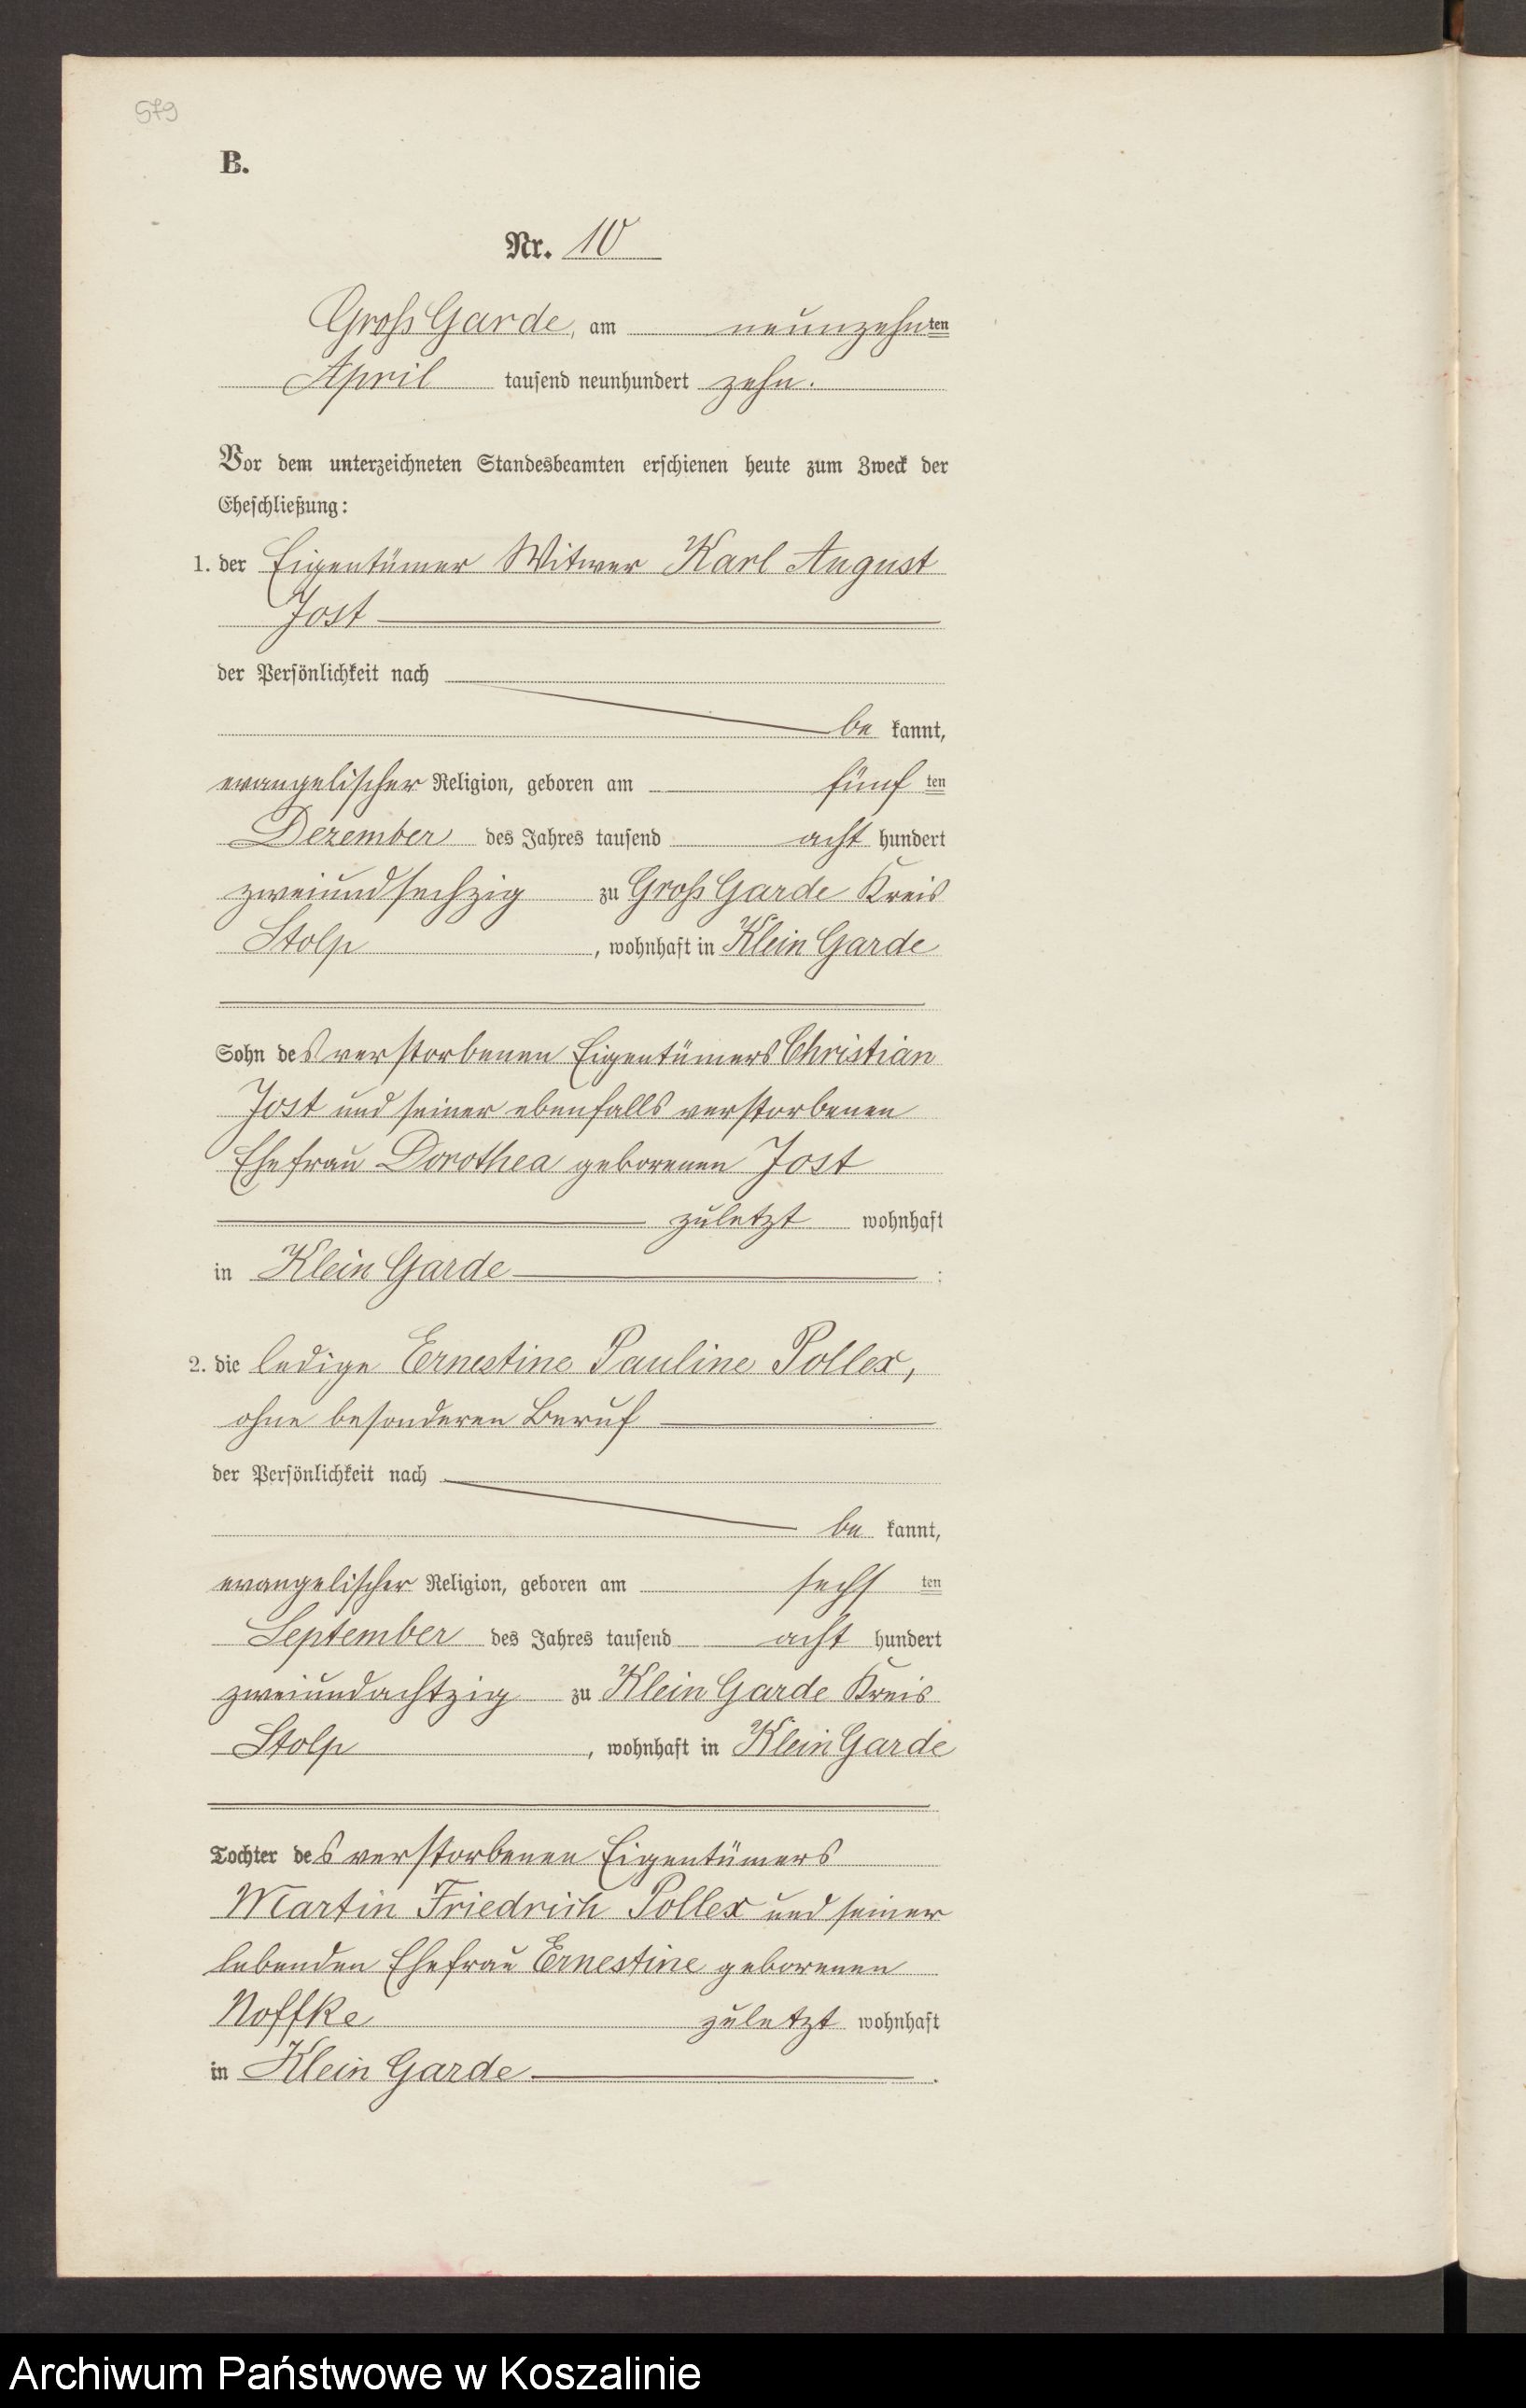 579
B.
Nr. 10
Groß Garde, am neunzehnten
April tausend neunhundert zehn.
Vor dem unterzeichneten Standesbeamten erschienen heute zum Zweck der
Eheschließung:
1. der Eigentümer Witwer Karl August
Jost
der Persönlichkeit nach
be kannt,
evangelischer Religion, geboren am fünf ten
Dezember des Jahres tausend acht hundert
zweiundsechzig zu Groß Garde Kreis
Stolp, wohnhaft in Klein Garde
Sohn des verstorbenen Eigentümers Christian
Jost und seiner ebenfalls verstorbenen
Ehefrau Dorothea geborenen Jost
zuletzt wohnhaft
in Klein Garde ;
2. die ledige Ernestine Pauline Pollex,
ohne besonderen Beruf
der Persönlichkeit nach
be kannt,
evangelischer Religion, geboren am sechs ten
September des Jahres tausend acht hundert
zweiundachtzig zu Klein Garde Kreis
Stolp, wohnhaft in Klein Garde
Tochter des verstorbenen Eigentümers
Martin Friedrich Pollex und seiner
lebenden Ehefrau Ernestine geborenen
Noffke zuletzt wohnhaft
in Klein Garde .
Archiwum Państwowe w Koszalinie